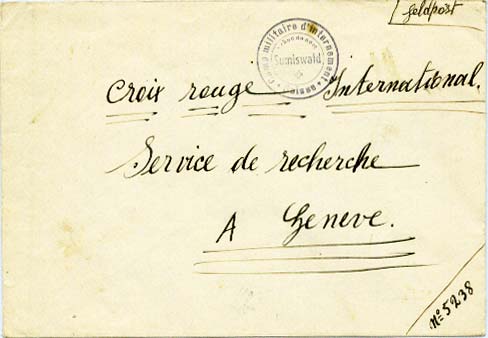 feldpost
Camp militaire d'internement
Sumiswald
Croix rouge International.
Service de recherche
A Geneve.
No 5238